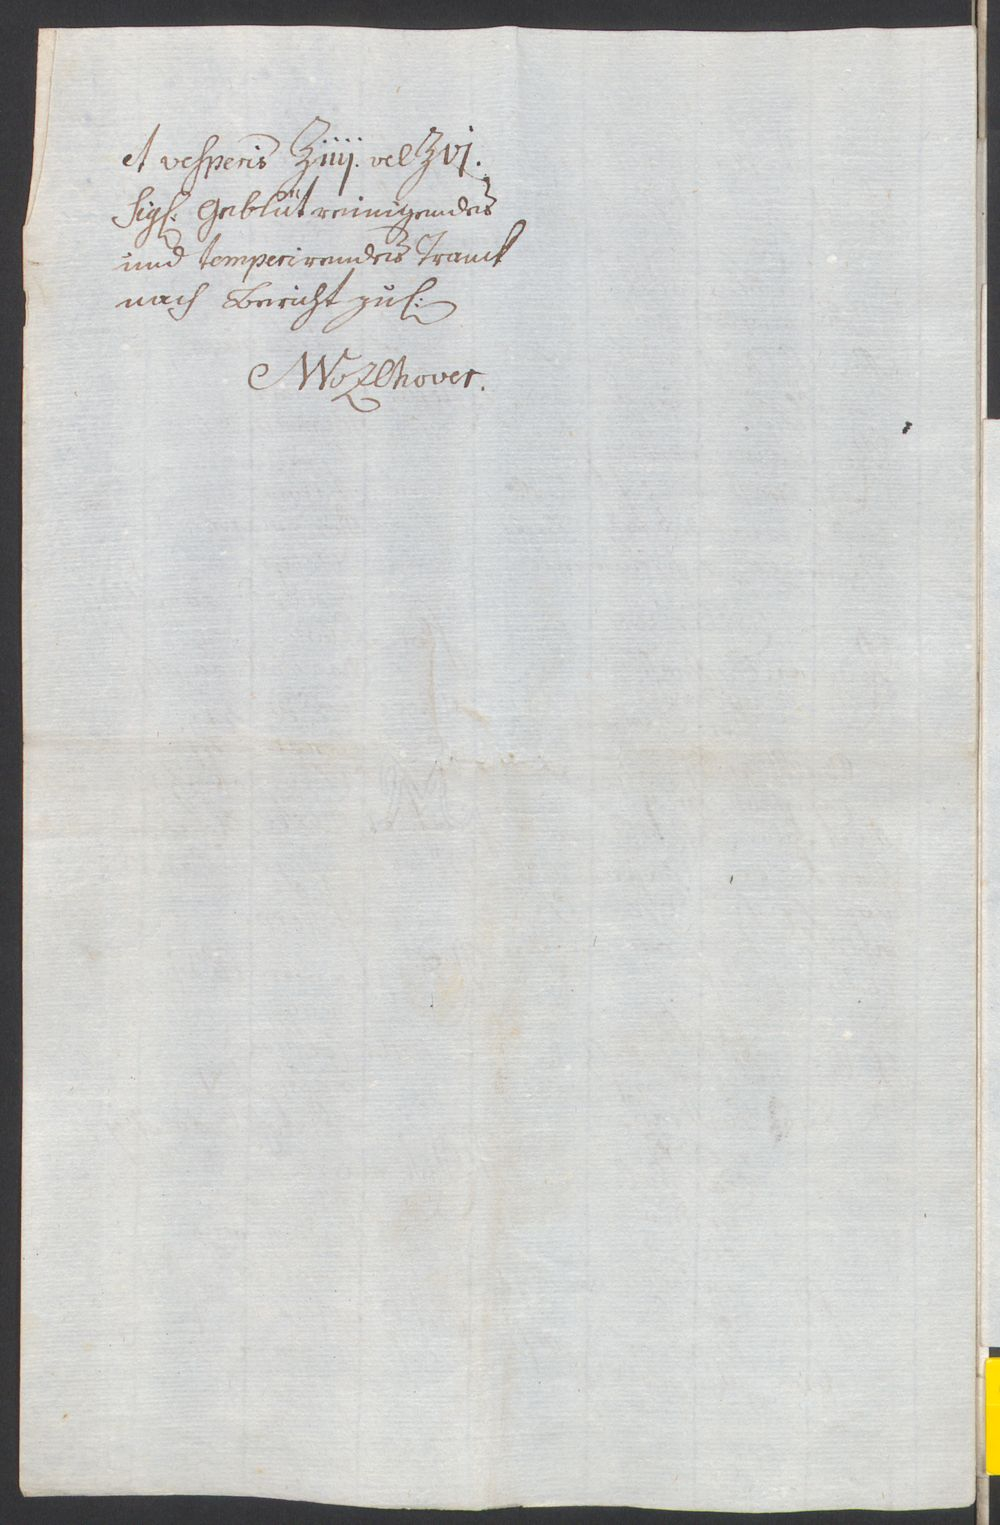 et vesperis ℥iiij. vel ℥vj.
Sigs. Geblüt reinigendes
und temperirendes Tranck
nach Bericht zu